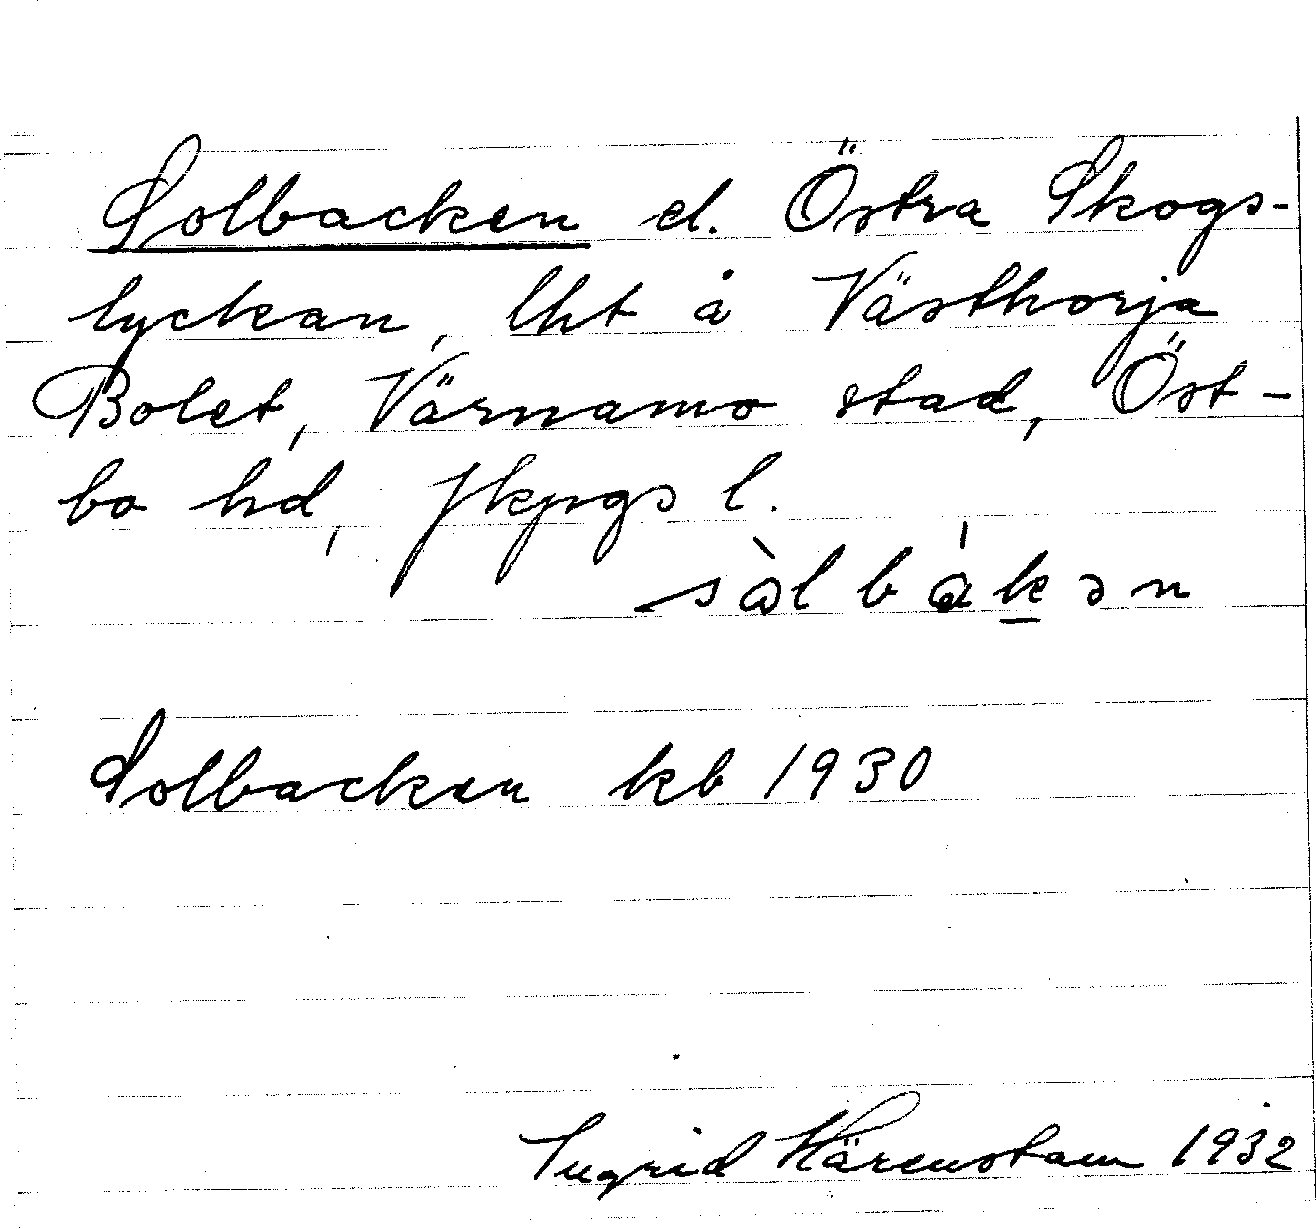 Solbacken el. Östra Skogs-
lyckan, lht å Västhorja
Bolet, Värnamo stad, Öst-
bo hd, Jkpgs l.
Solbacken kb 1930
Ingrid Härenstam 1932